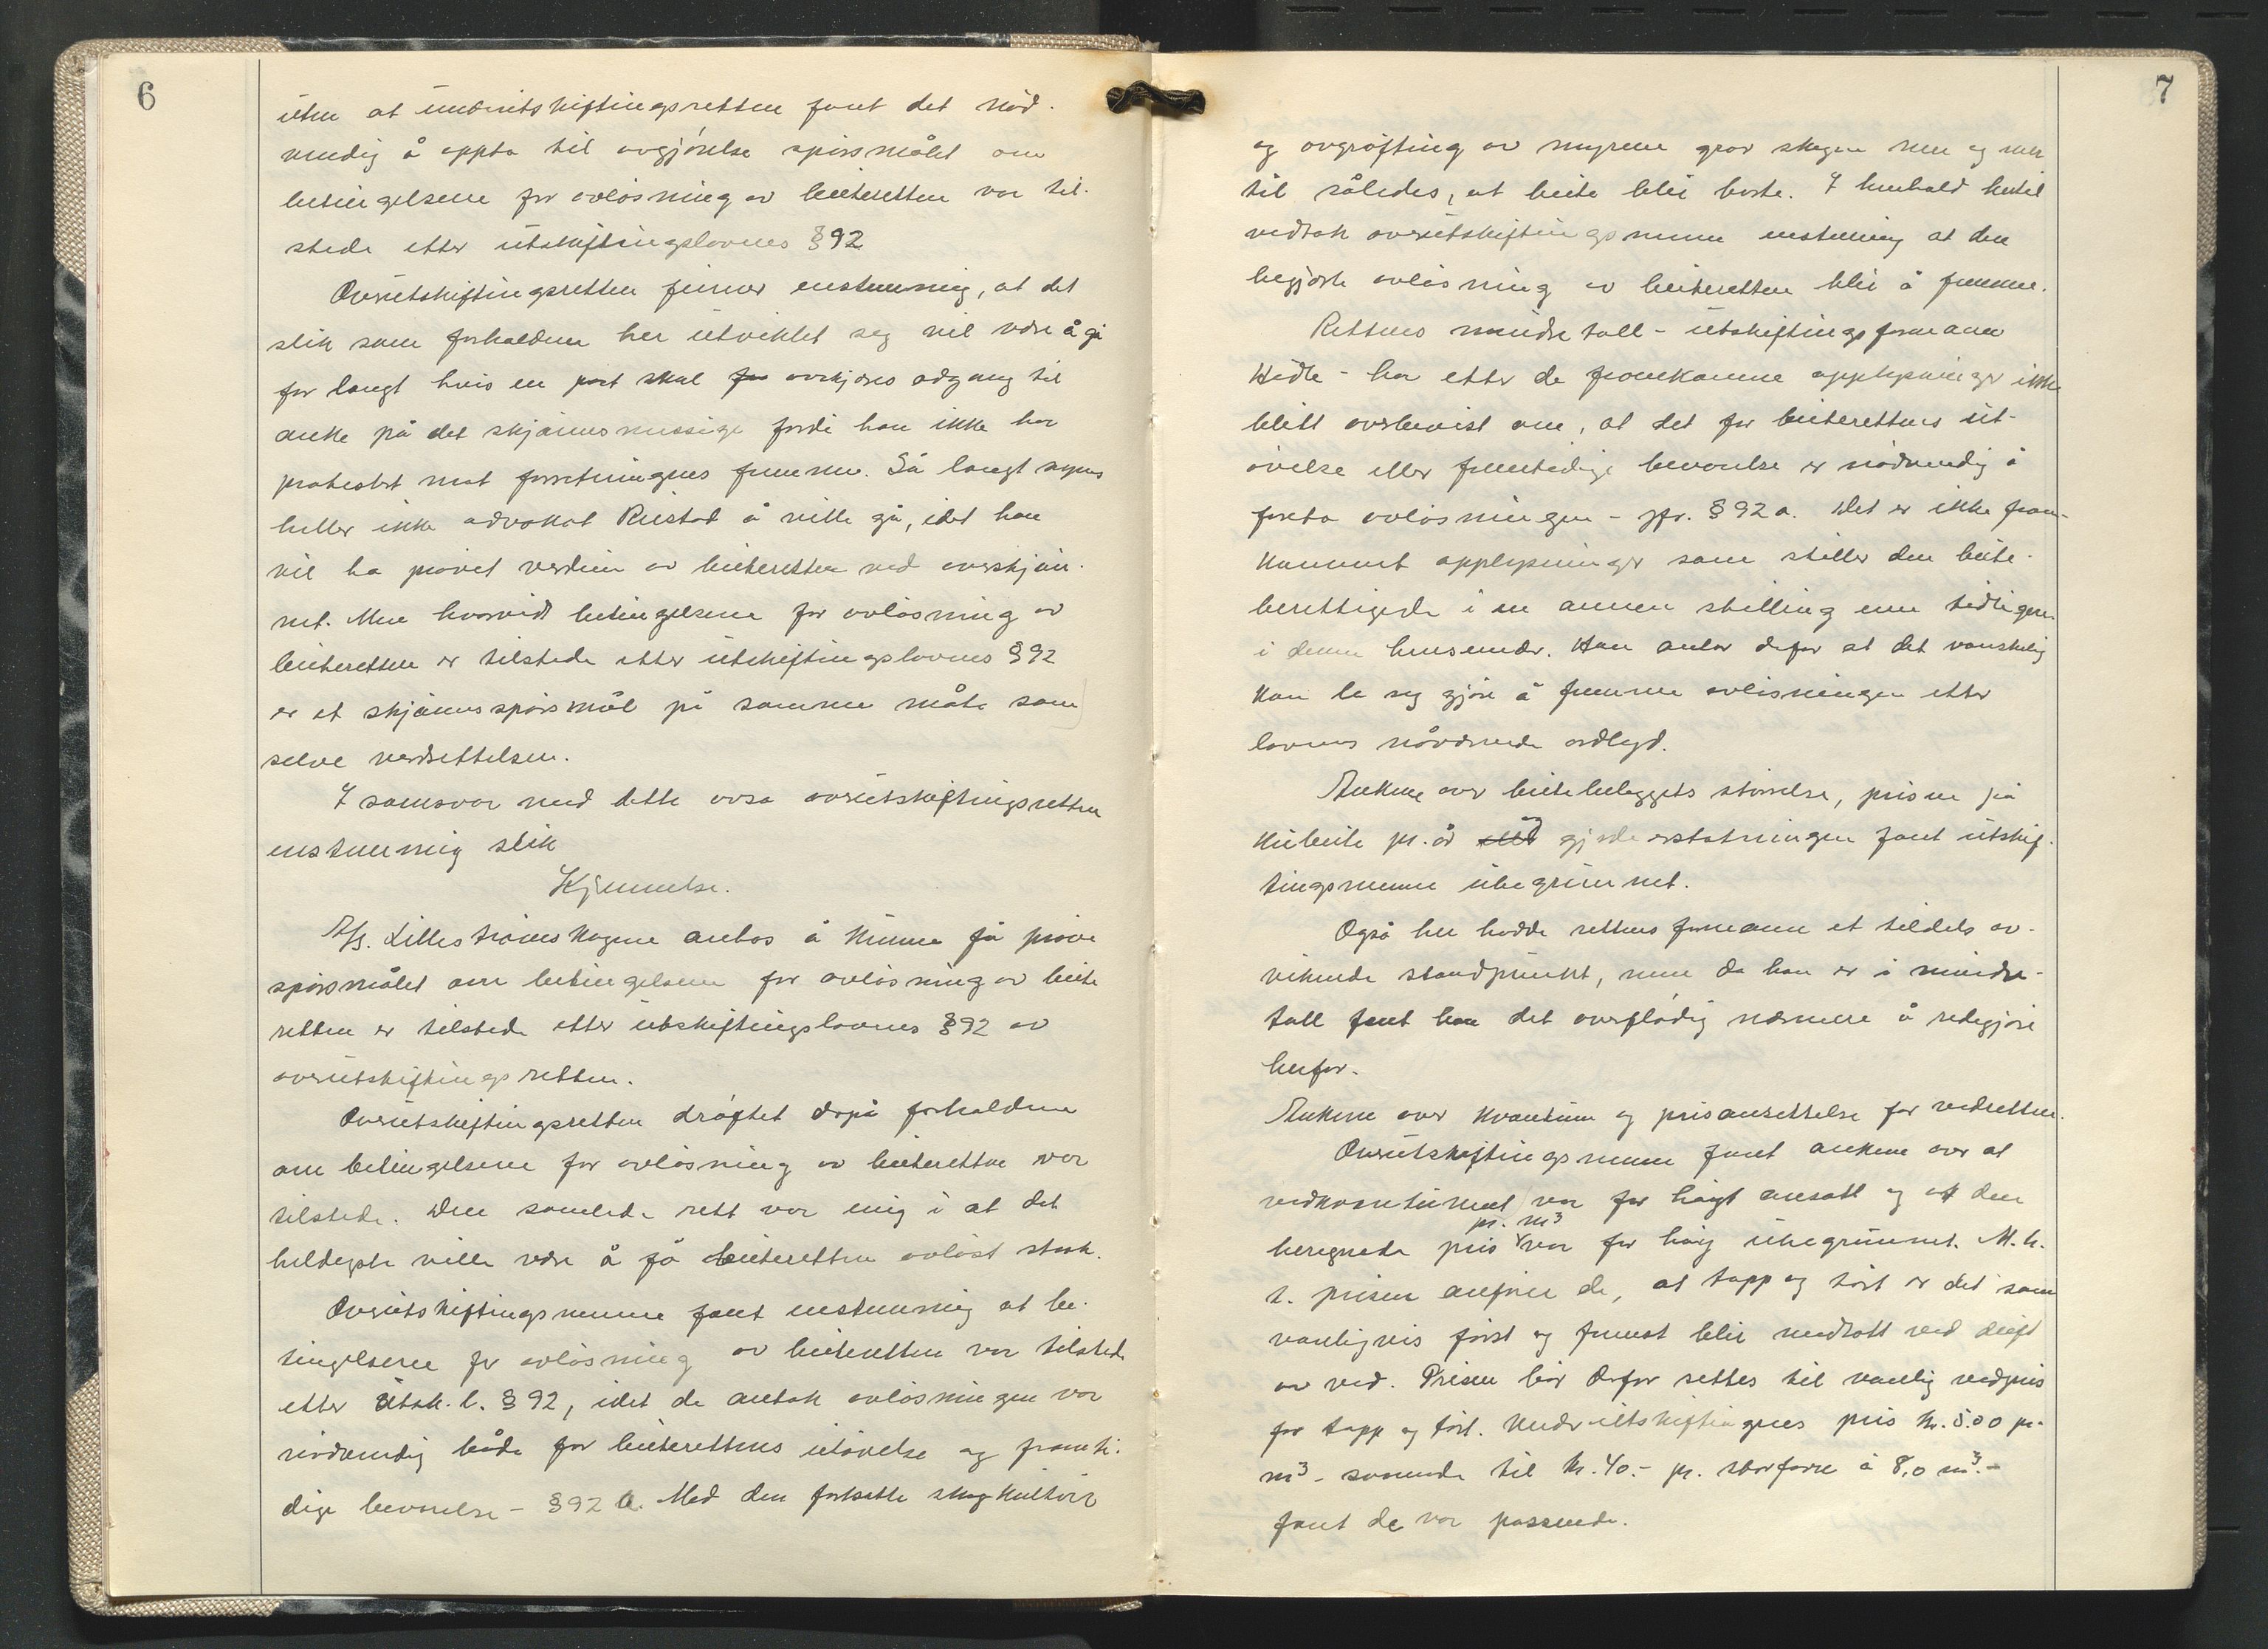 6
uten at underutskiftingsretten fant det nød-
vendig å oppta til avgjørelse spørsmålet om
betingelsene for avløsning av beiteretten var til-
stede etter utskiftingslovens § 92
Overutskiftingsretten finner enstemmig, at det
slik som forholdene her utviklet seg vil være å gå
for langt hvis en part skal avskjæres adgang til
anke på det skjønnsmessige fordi han ikke har
protestert mot forretningens fremme. Så langt synes
heller ikke advokat Rustad å ville gå, idet han
vil ha prøvet verdien av beiteretten ved overskjøn-
net. Men hvorvidt betingelsene for avløsning av
beiteretten er tilstede etter utskiftingslovens § 92
er et skjønnsspørsmål på samme måte som
selve verdsettelsen.
I samsvar med dette avsa overutskiftingsretten
enstemmig slik
Kjennelse.
A/S. Lillestrømskogene antas å kunne få prøve
spørsmålet om betingelsene for avløsning av beite
retten er tilstede etter utskiftingslovens § 92 av
overutskiftingsretten.
Overutskiftingsretten drøftet derpå forholdene
om betingelsene for avløsning av beiteretten var
tilstede. Den samlede rett var enig i at det
heldigste ville være å få beiteretten avløst straks.
Overutskiftingsmennene fant enstemmig at be-
tingelsene for avløsning av beiteretten var tilstede
etter utsk. l. § 92, idet de antok avløsningen var
nødvendig både for beiterettens utøvelse og framti-
dige bevarelse - § 92 a. Med den fortsatte skogkultur
7
og avgrøfting av myrene gror skogen mer og mer
til således, at beite blir borte. I henhold hertil
vedtok overutskiftingsmenn enstemmig at den
begjærte avløsning av beiteretten blir å fremme.
Rettens mindretall - utskiftingsformann
Hidle - har etter de framkomne opplysninger ikke
blitt overbevist om, at det for beiterettens ut-
øvelse eller fremtidige bevarelse er nødvendig å
foreta avløsningen - jfr. § 92 a. Det er ikke fram-
kommet opplysninger som stiller den beite-
berettigede i en annen stilling enn tidligere
i denne henseende. Han antar derfor at det vanskelig
kan la seg gjøre å fremme avløsningen etter
lovens nåværende ordlyd.
Ankene over beitebeleggets størrelse, prisen på
kubeite pr. år og gjerdeerstatningen fant utskif-
tingsmennene ubegrunnet.
Også her hadde rettens formann et tildels av-
vikende standpunkt, men da han er i mindre-
tall fant han det overflødig nærmere å redegjøre
herfor.
Ankene over kvantum og prisansettelse for vedretten.
Overutskiftingsmenn fant ankene over at
vedkvantumet var for høgt ansatt og at den
beregnede pris pr. m³ var for høy ubegrunnet. M. h.
t. prisen anfører de, at topp og tørt er det som
vanligvis først og fremst blir medtatt ved drift
av ved. Prisen bør derfor settes til vanlig vedpris
for topp og tørt. Underutskiftingens pris kr. 5.00 pr.
m³ - svarende til kr. 40.- pr. storfavn á 8,0 m³. -
fant de var passende.